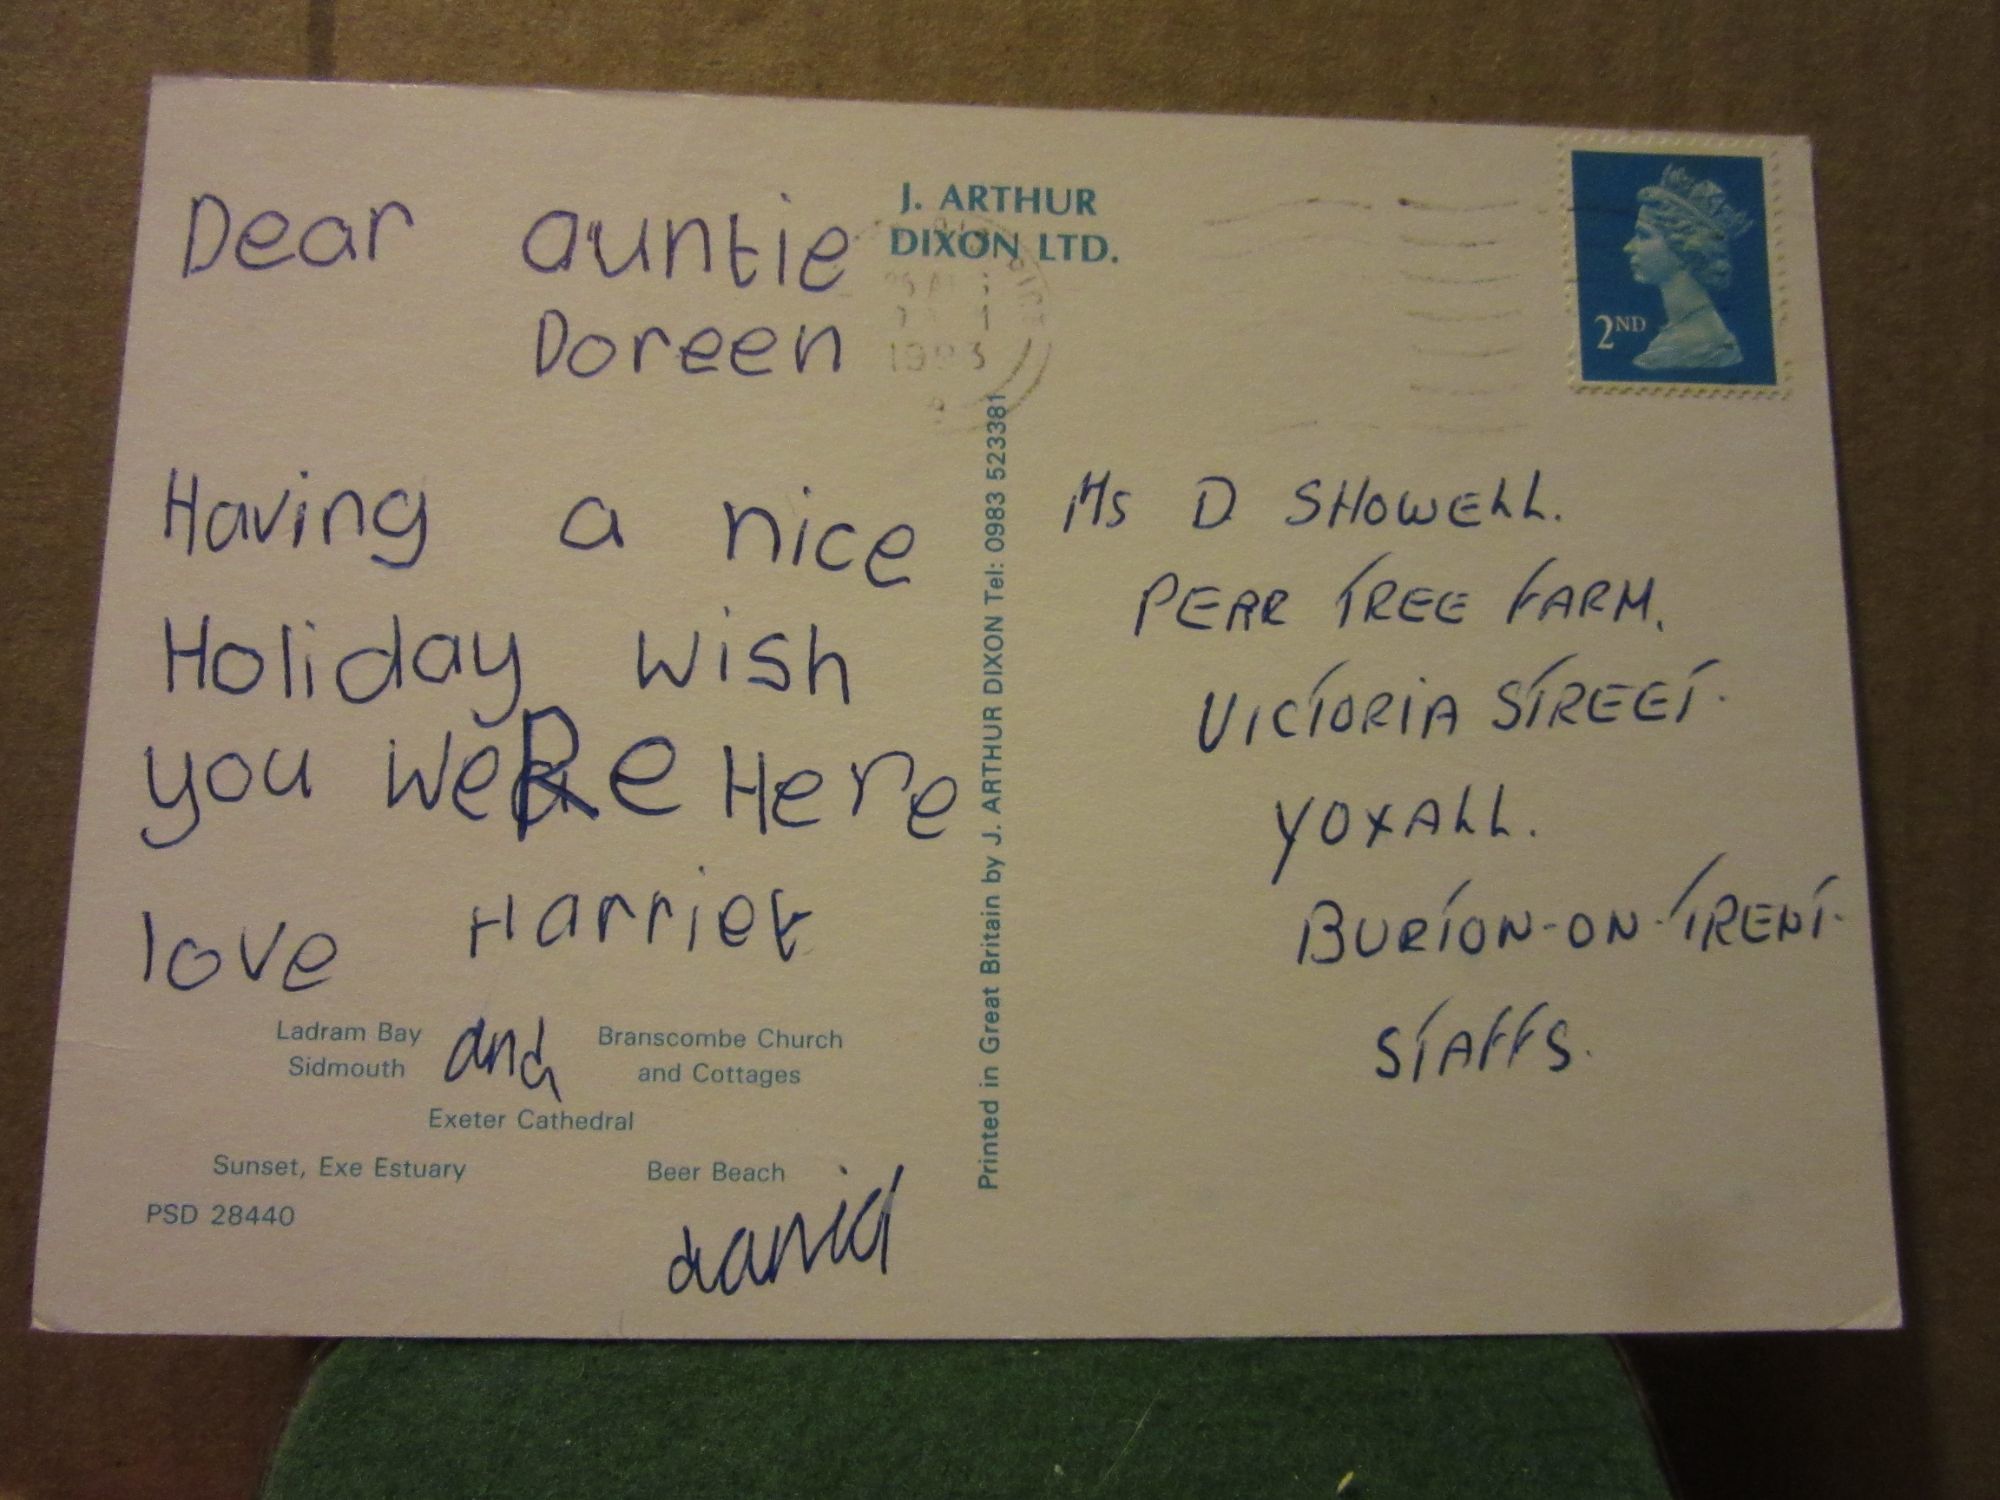 Dear auntie
Doreen
Having a nice
Holiday wish
you weRe Here
love Harriet
and
david
Ladram Bay
Sidmouth
Branscombe Church
and Cottages
Exeter Cathedral
Sunset, Exe Estuary
Beer Beach
PSD 28440
J. ARTHUR
DIXON LTD.
Printed in Great Britain by J. ARTHUR DIXON Tel: 0983 523381
2ND
Ms D SHOWELL.
PEAR TREE FARM.
VICTORIA STREET.
YOXALL.
BURTON-ON-TRENT.
STAFFS.